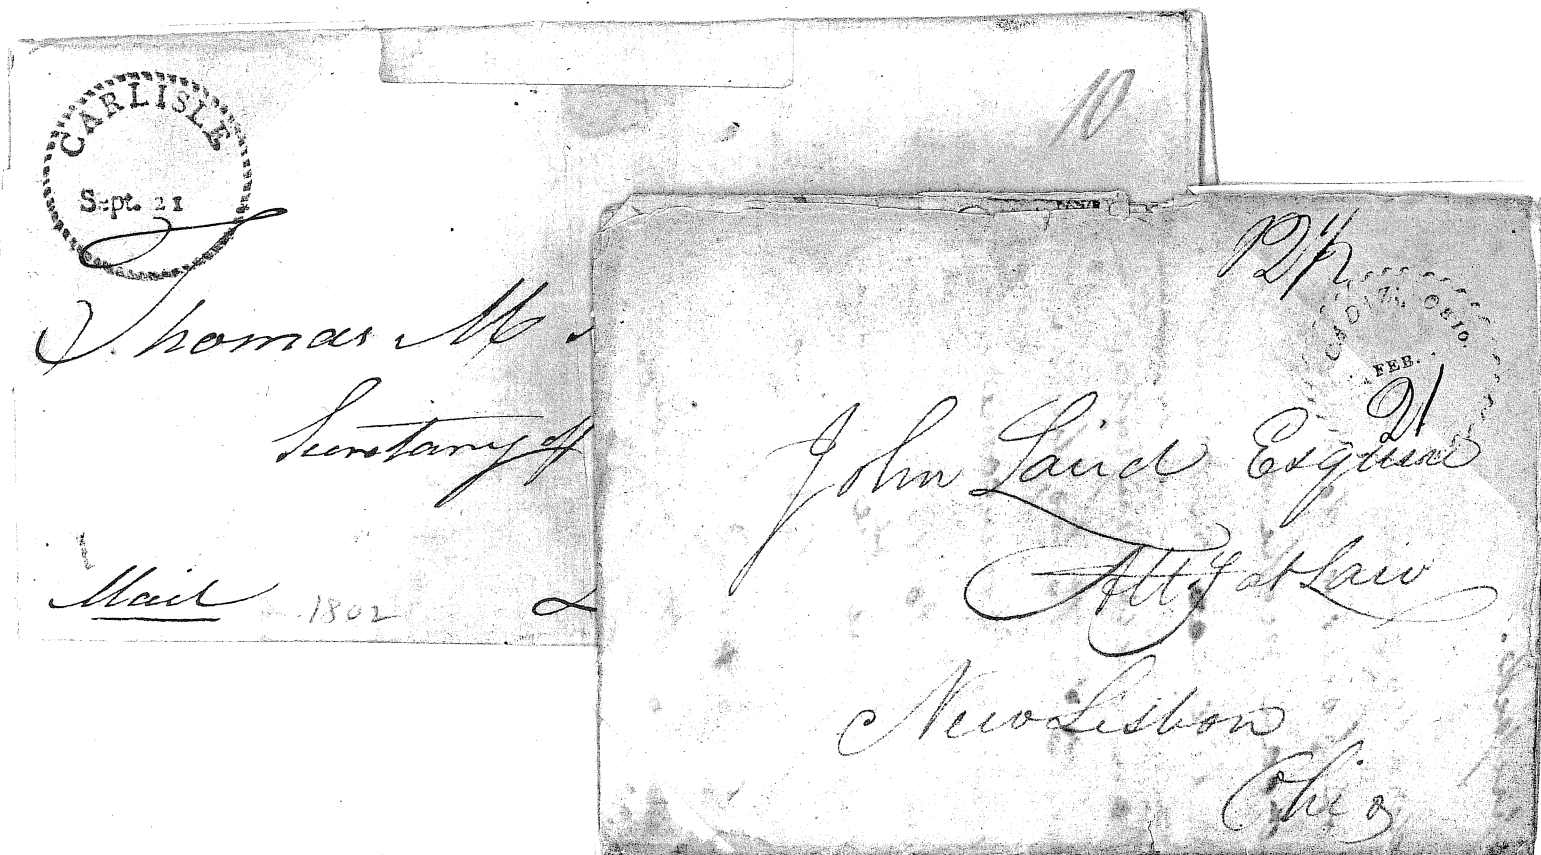 CARLISLE
Sept. 21
10
Thomas M
Secretary of
Mail
1802
12½
CADIZ, OHIO.
FEB.
21
John Laird Esquire
Atty at Law
New Lisbon
Ohio